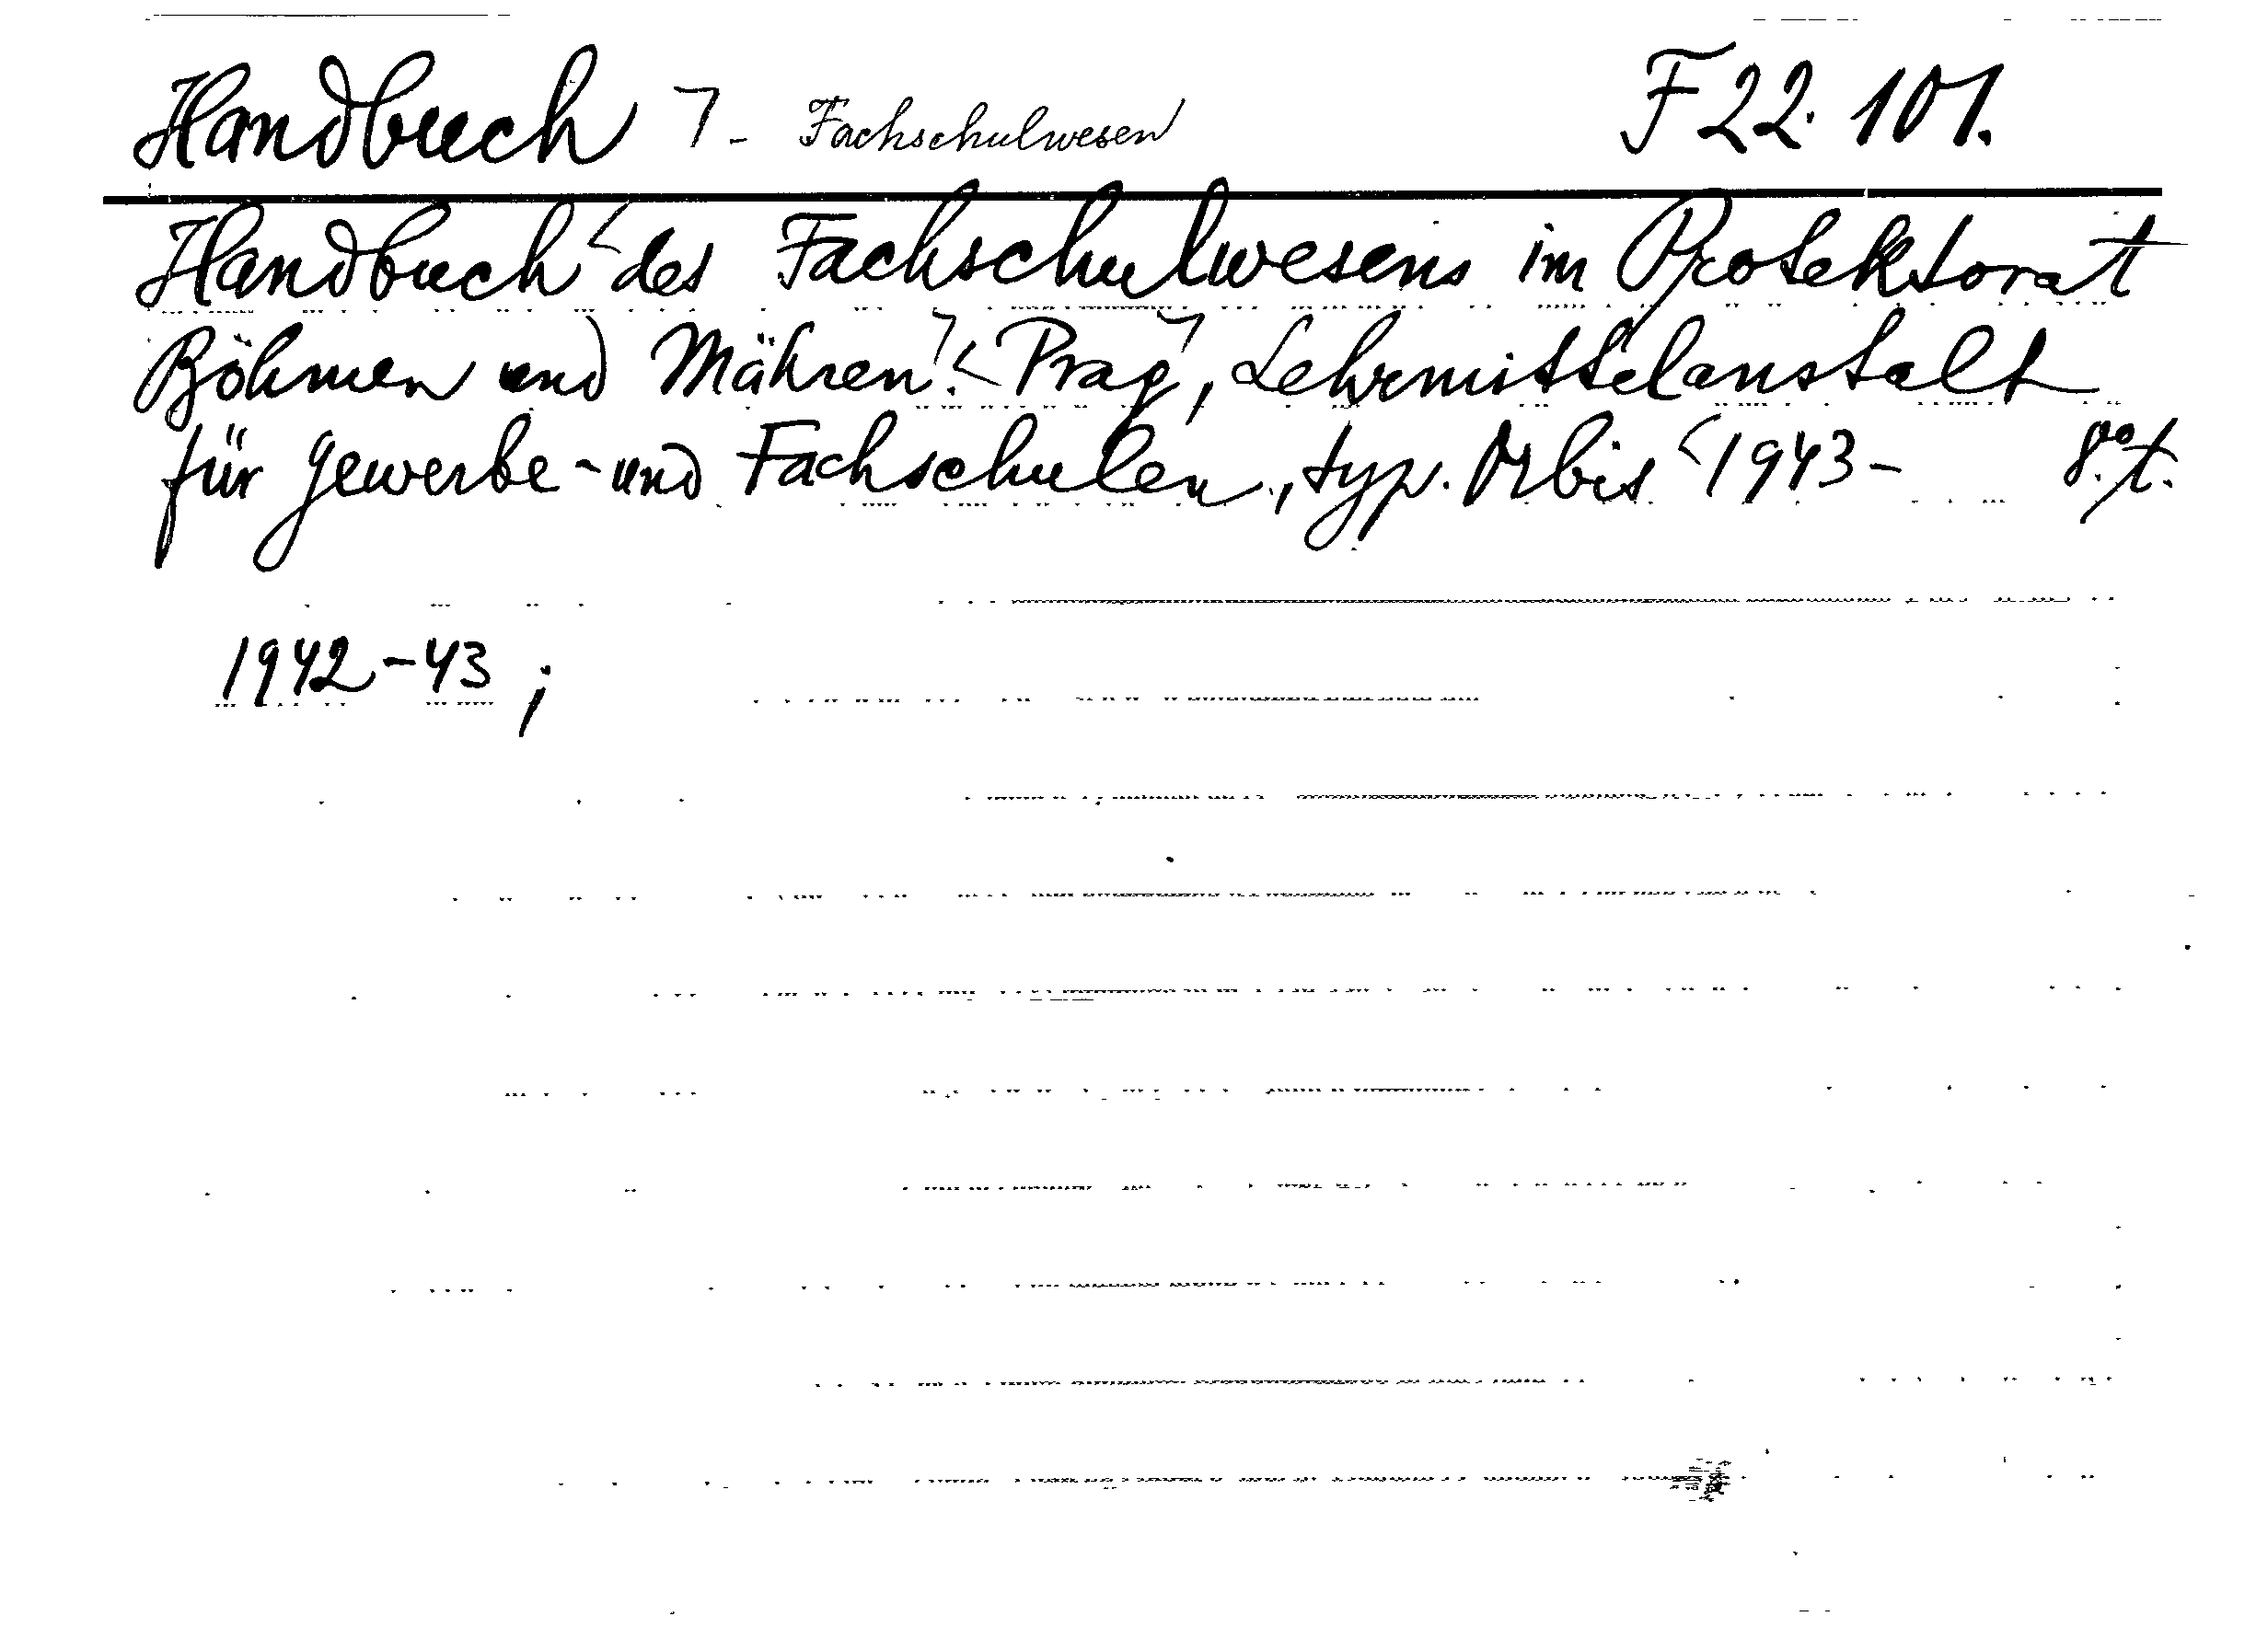 Handbuch ⁊ - Fachschulwesen F 22.101.
Handbuch < des Fachschulwesens im Protektorat
Böhmen und Mähren⁊. < Prag⁊, Lehrmittelanstalt
für Gewerbe- und Fachschulen, typ. Orbis < 1943- 8.°t.
1942-43;